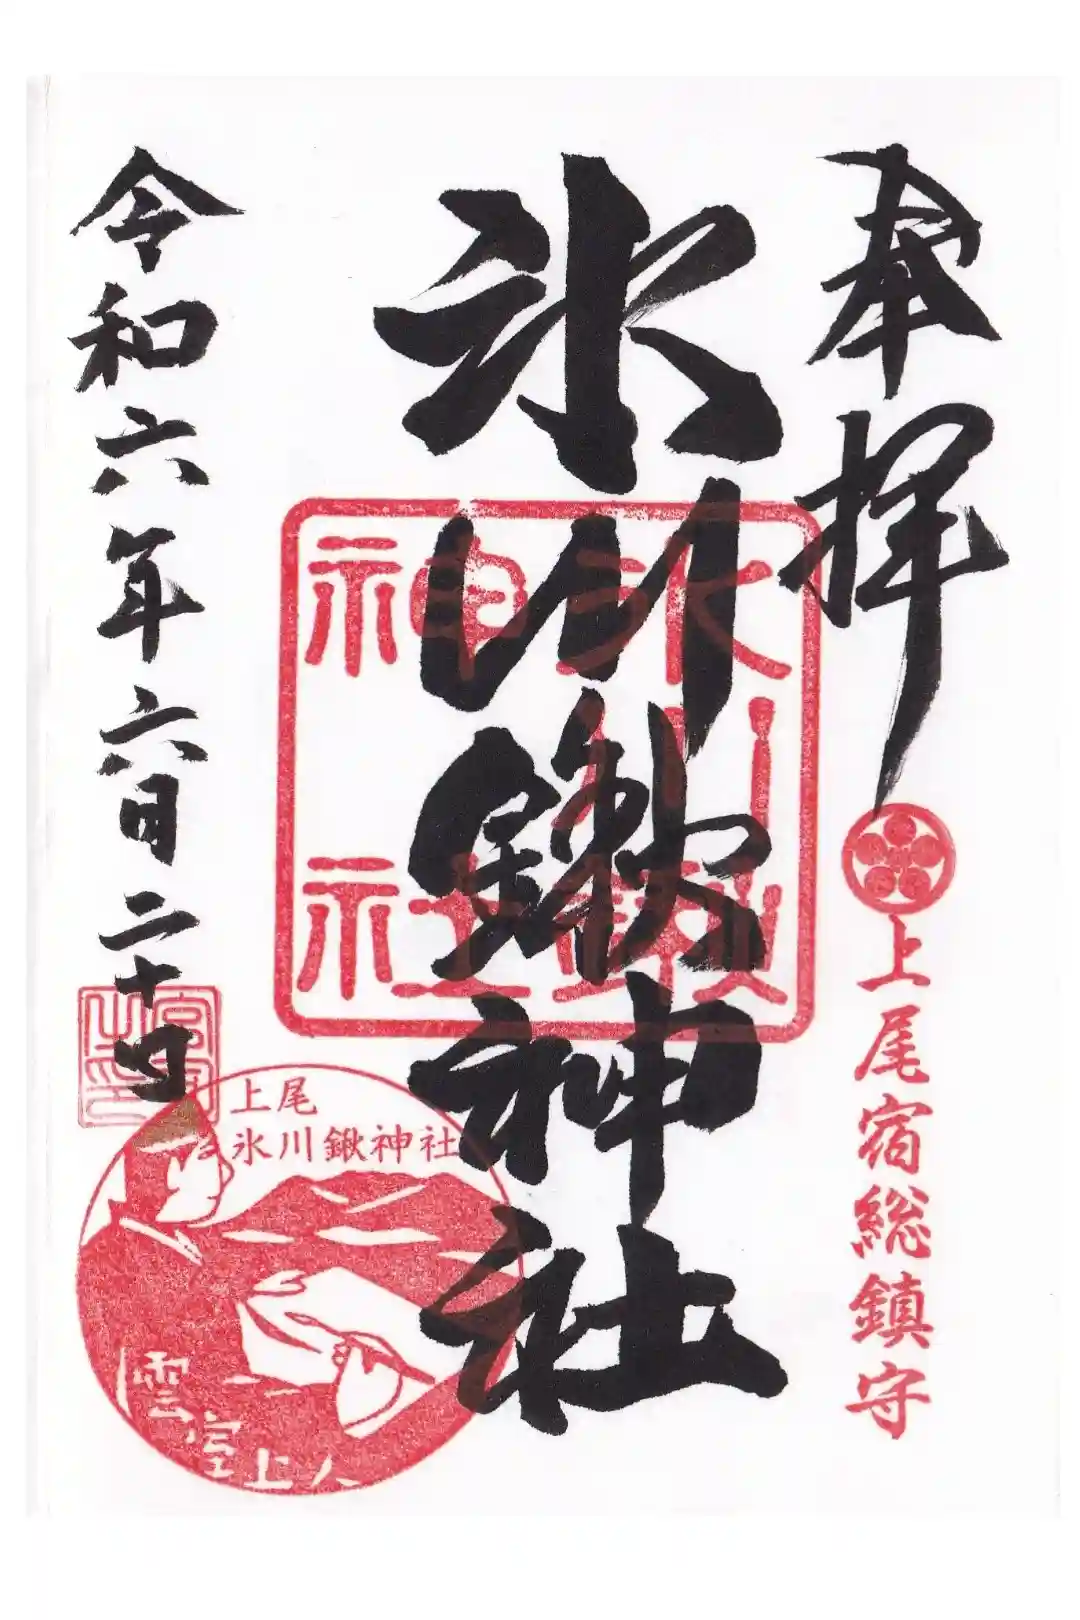 奉拝
上尾宿総鎮守
氷川鍬神社
氷川鍬
神社
令和六年六月二十日
上尾
氷川鍬神社
雲室上人